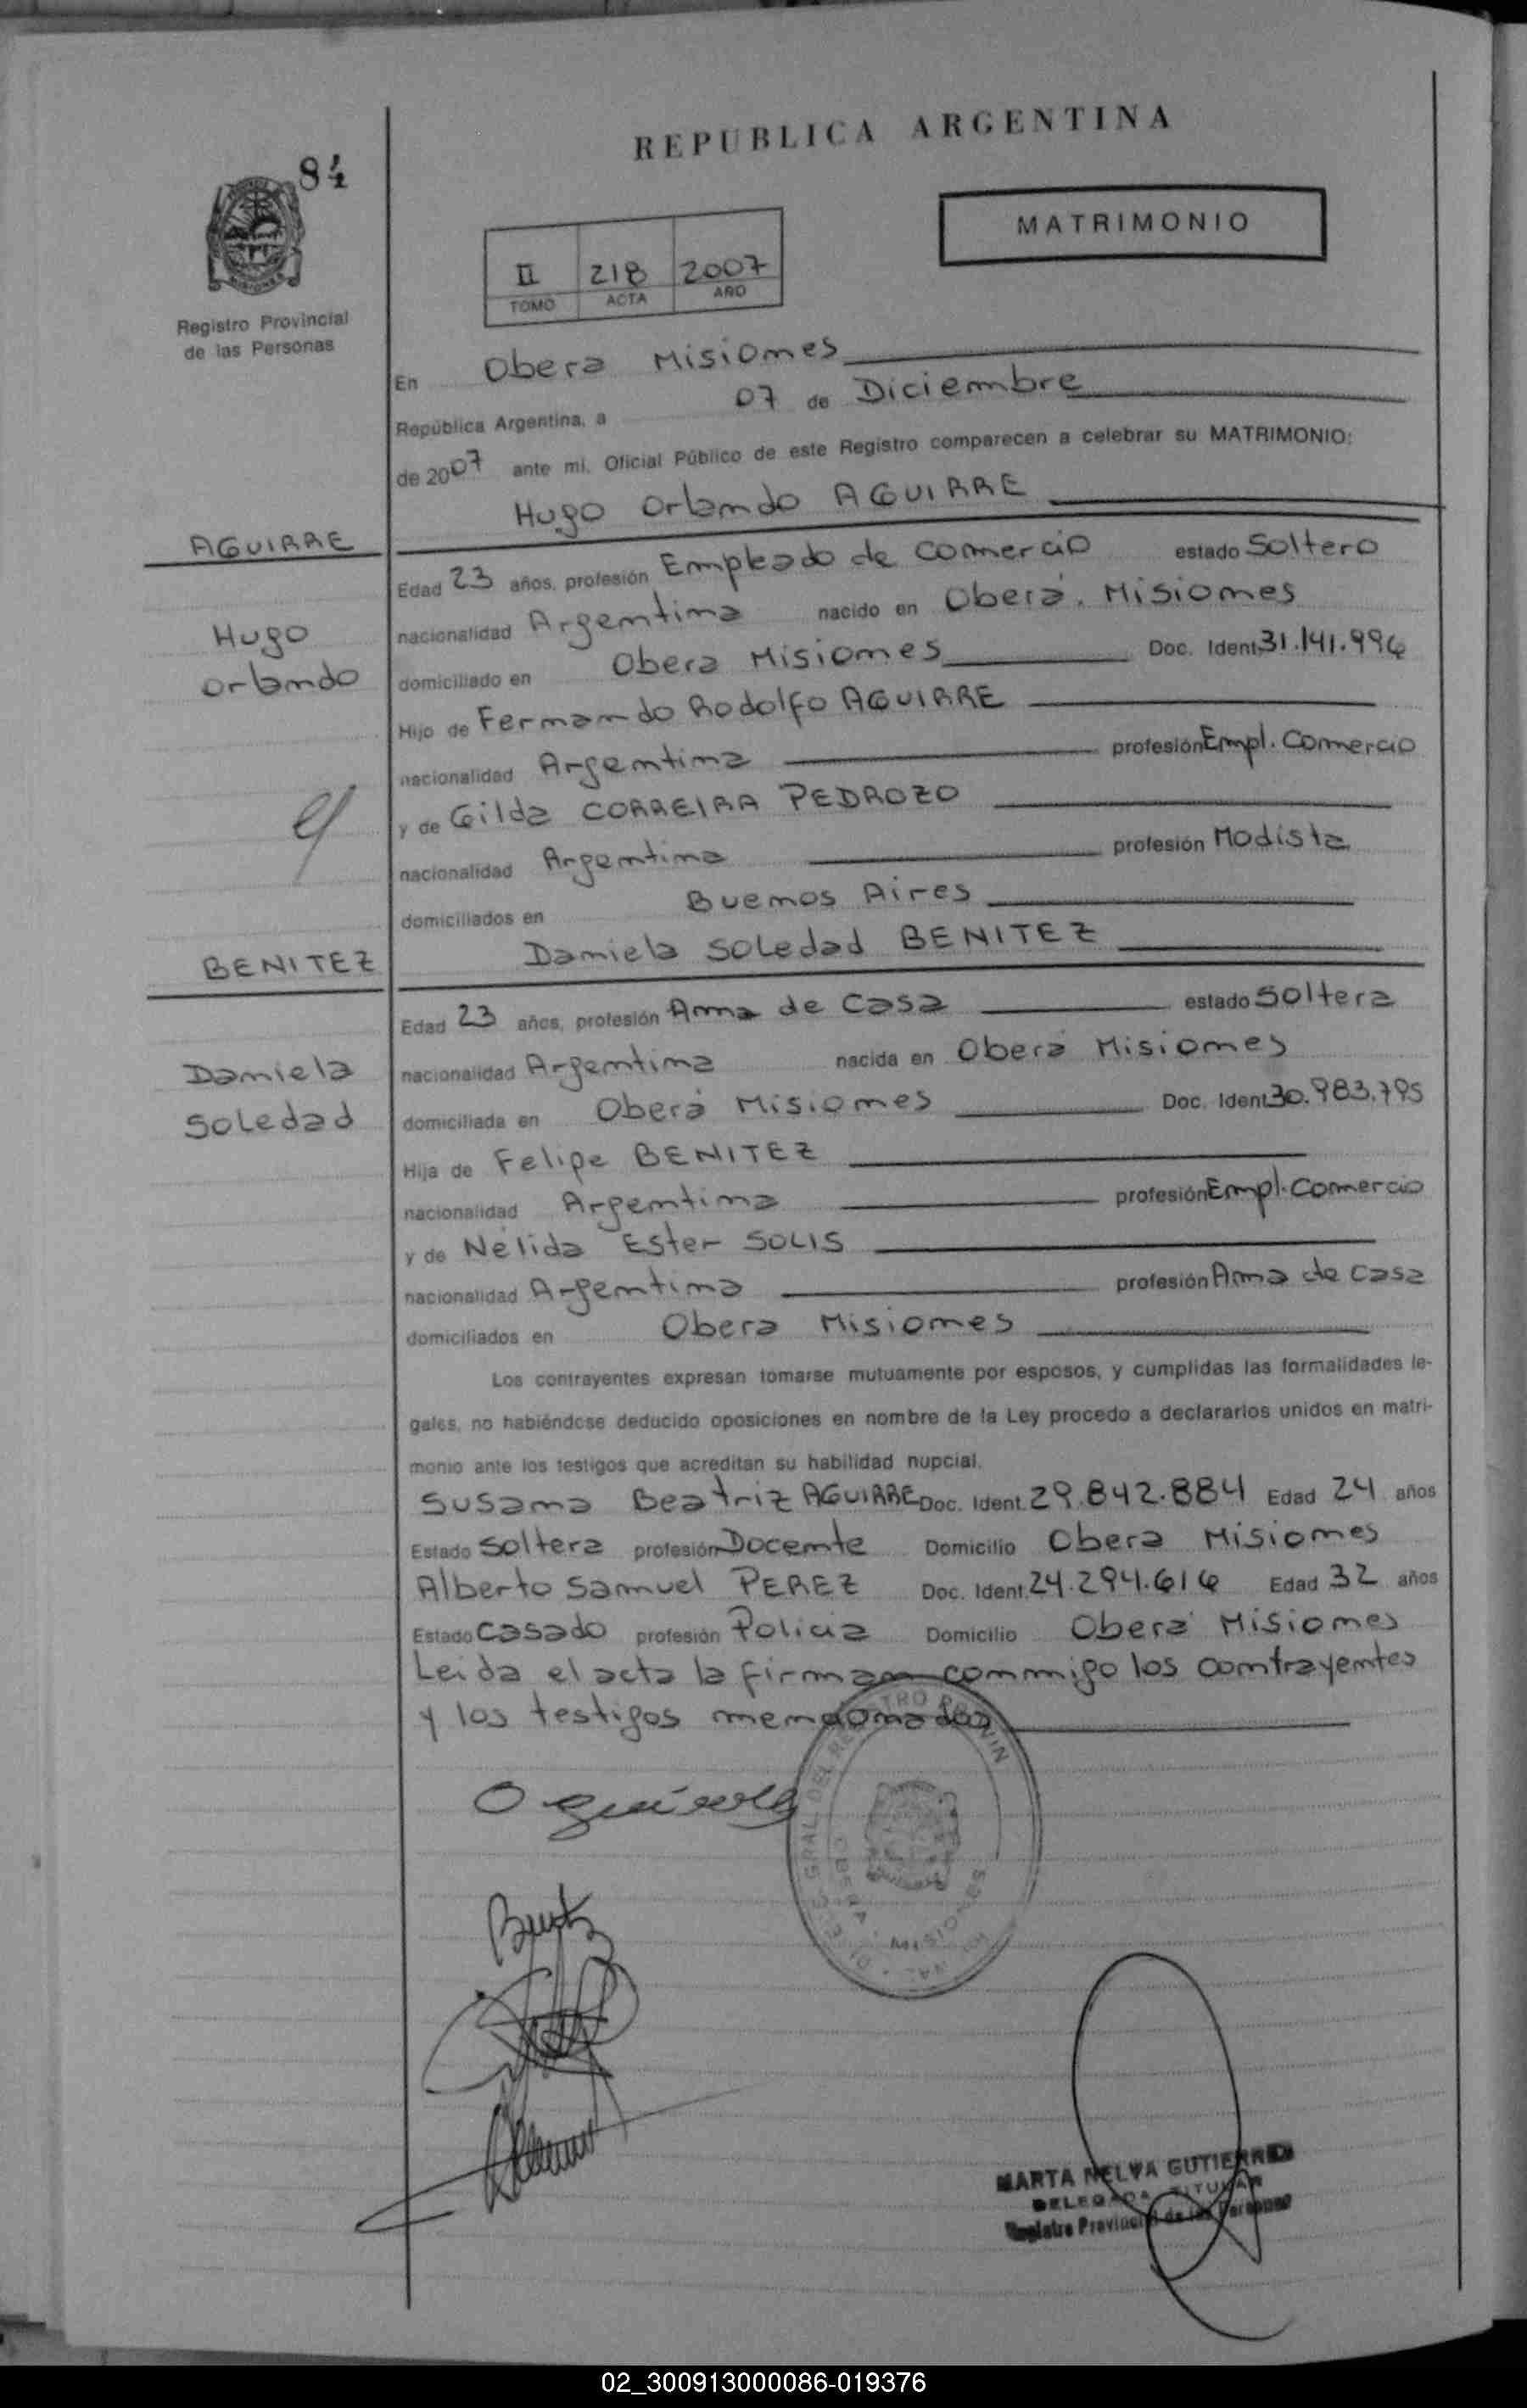 REPUBLICA ARGENTINA
84
MATRIMONIO
II 218 2007
TOMO ACTA AÑO
Registro Provincial
de las Personas
En Obera Misiones
República Argentina, a 07 de Diciembre
de 2007 ante mi, Oficial Público de este Registro comparecen a celebrar su MATRIMONIO:
Hugo Orlando AGUIRRE
AGUIRRE
Edad 23 años, profesión Empleado de Comercio estado Soltero
nacionalidad Argentina nacido en Oberá. Misiones
Hugo
Orlando
domiciliado en Obera Misiones Doc. Ident. 31.141.996
Hijo de Fernando Rodolfo AGUIRRE
nacionalidad Argentina profesión Empl. Comercio
y de Gilda CORREIRA PEDROZO
nacionalidad Argentina profesión Modista
domiciliados en Buenos Aires
Daniela Soledad BENITEZ
BENITEZ
Edad 23 años, profesión Ama de Casa estado Soltera
nacionalidad Argentina nacida en Oberá Misiones
Daniela
Soledad
domiciliada en Oberá Misiones Doc. Ident. 30.983.795
Hija de Felipe BENITEZ
nacionalidad Argentina profesión Empl. Comercio
y de Nélida Ester SOLIS
nacionalidad Argentina profesión Ama de Casa
domiciliados en Obera Misiones
Los contrayentes expresan tomarse mutuamente por esposos, y cumplidas las formalidades le-
gales, no habiéndose deducido oposiciones en nombre de la Ley procedo a declararlos unidos en matri-
monio ante los testigos que acreditan su habilidad nupcial.
Susana Beatriz AGUIRRE Doc. Ident. 29.842.884 Edad 24 años
Estado Soltera profesión Docente Domicilio Obera Misiones
Alberto Samuel PEREZ Doc. Ident. 24.294.616 Edad 32 años
Estado Casado profesión Policia Domicilio Oberá Misiones
Leida el acta la firman conmigo los contrayentes
y los testigos mencionados
MARTA NELVA GUTIERREZ
DELEGADA TITULAR
Registro Provincial de las Personas
02_300913000086-019376